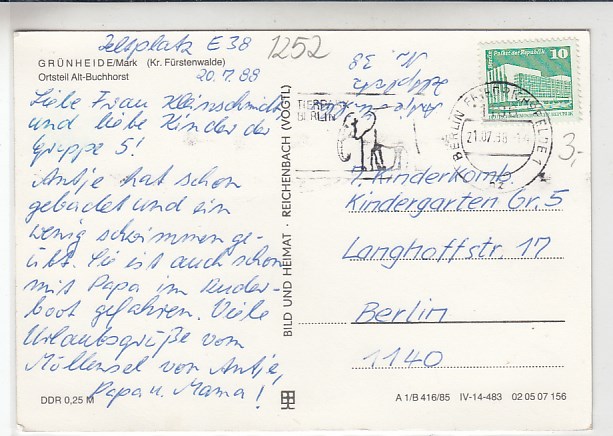 Zeltplatz E 38
1252
GRÜNHEIDE/Mark (Kr. Fürstenwalde)
Ortsteil Alt-Buchhorst
20.7.88
Liebe Frau Kleinschmidt
und liebe Kinder der
Gruppe 5!
Antje hat schon
gebadet und ein
wenig schwimmen ge-
übt. Sie ist auch schon
mit Papa im Ruder-
boot gefahren. Viele
Urlaubsgrüße vom
Möllensee von Antje,
Papa u. Mama!
DDR 0,25 M
BILD UND HEIMAT · REICHENBACH (VOGTL)
Nr. 38
TIERPARK
BERLIN
BERLIN
21.07.88
Palast der Republik
10
3,-
7. Kinderkomb.
Kindergarten Gr. 5
Langhoffstr. 17
Berlin
1140
A 1/B 416/85 IV-14-483 02 05 07 156